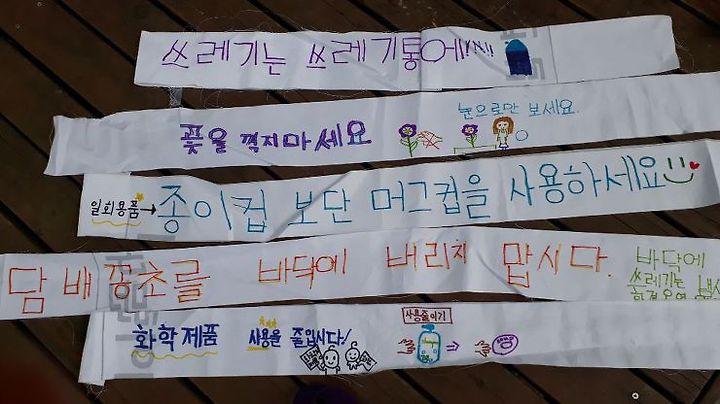 쓰레기는 쓰레기통에!!!!
꽃을 꺾지마세요
눈으로만 보세요.
일회용품→종이컵 보단 머그컵을 사용하세요
담배꽁초를 바닥에 버리지 맙시다.
바닥에
쓰레기는
환경오염
화학제품 사용을 줄입시다!
사용줄이기